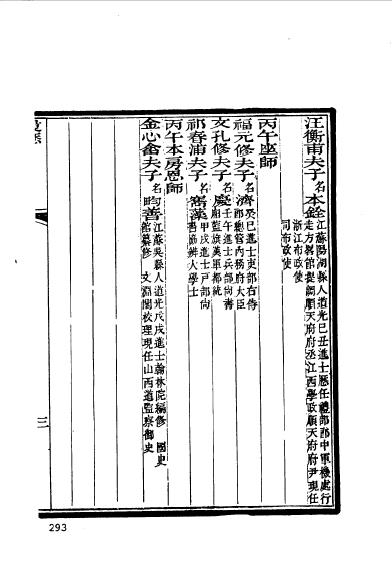 汪衡甫夫子 名本銓 江蘇陽湖縣人道光己丑進士歷任禮部郎中軍機處行
走方略館纂修順天府府丞江西學政順天府府尹現任
浙江布政使
司布政使
丙午座師
福元修夫子 名濟 癸巳進士吏部右侍
郎總管內務府大臣
文孔修夫子 名慶 壬午進士兵部尚書
鑲藍旗漢軍都統
祁春浦夫子 名寯藻 甲戌進士戶部尚
書協辦大學士
丙午本房恩師
金心畬夫子 名勻善 江蘇吳縣人道光戊戌進士翰林院編修 國史
館纂修 文淵閣校理現任山西道監察御史
三
293